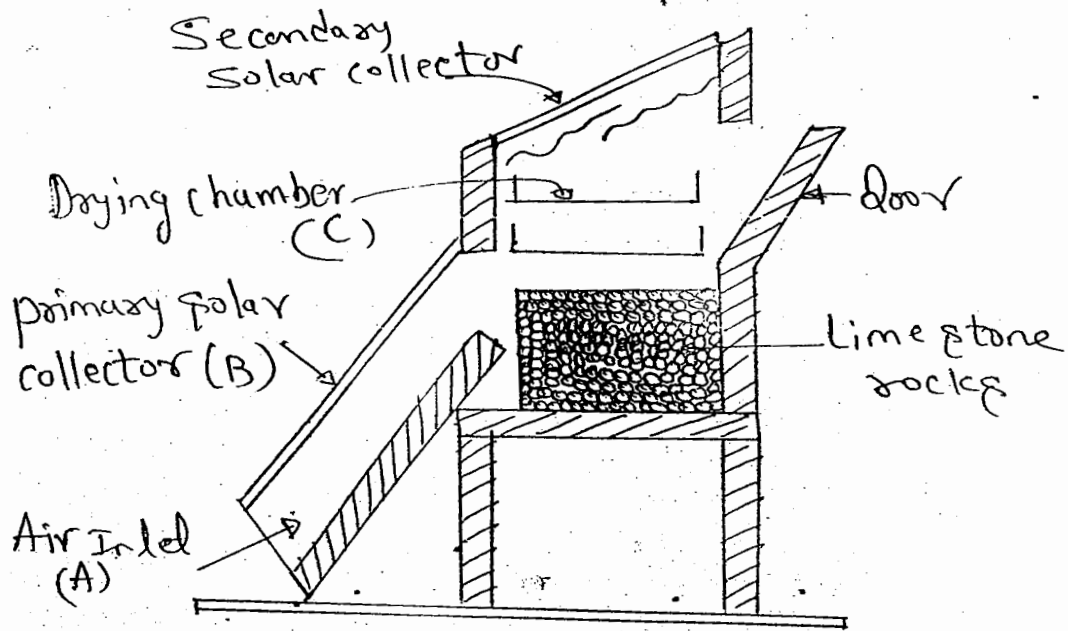 Secondary
Solar collector
Drying chamber
(C)
door
primary solar
collector (B)
Lime stone
rocks
Air Inlet
(A)